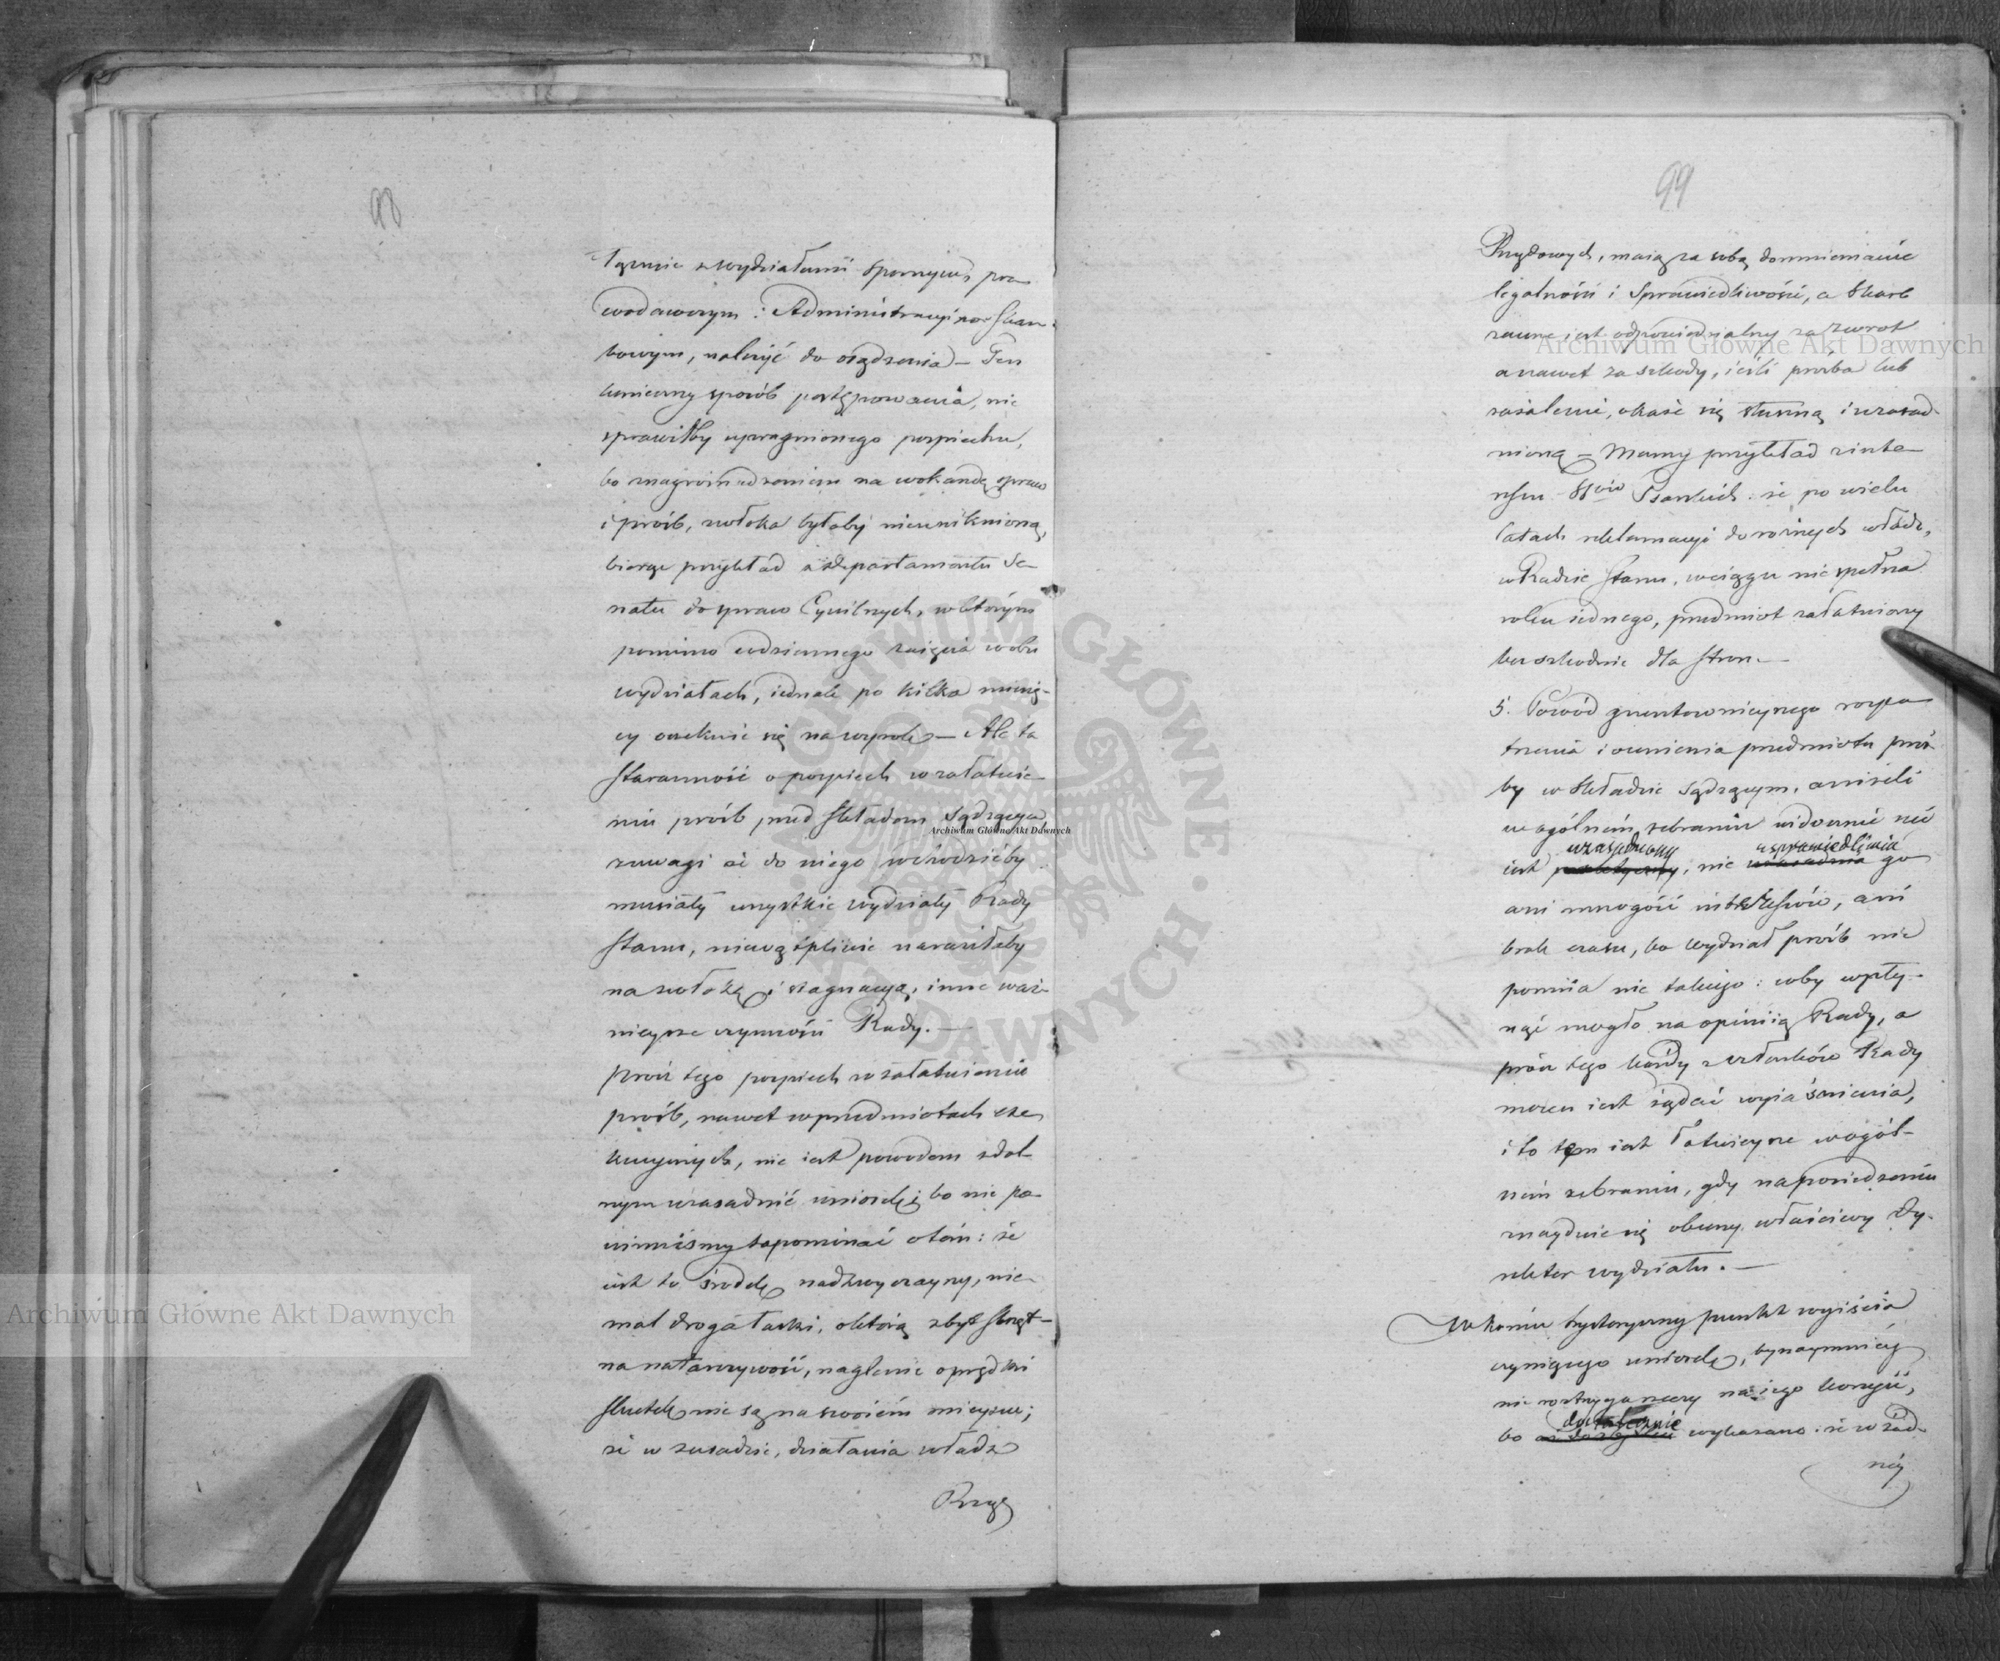 98
łącznie z wydziałami spornym, pra
wodawczym i Administracyjno-Skar-
bowym, należyć do osądzenia — Ten
konieczny sposób postępowania, nie
sprawiłby upragnionego pospiechu,
bo nagromadzeniem na wokandę spraw
i prośb, zwłoka byłaby nieuniknioną,
biorąc przykład z departamentu Se-
natu do spraw Cywilnych, w którym
pomimo codziennego zajęcia w obu
wydziałach, jednak po kilka miesię-
cy oczekuje się na wyrok — Ale ta
staranność o pospiech w załatwie-
niu prośb przed składem Sądzącym,
z uwagi że do niego wchodzićby
musiały wszystkie wydziały Rady
Stanu, niewątpliwie naraziłaby
na zwłokę i stagnacyą, inne waż-
niejsze czynności Rady. —
Prócz tego pospiech w załatwieniu
prośb, nawet w przedmiotach exe
kucyjnych, nie jest powodem zdol-
nym uzasadnić wniosek, bo nie po-
winniśmy zapominać o tém: że
jest to środek nadzwyczajny, nie-
mal droga łaski, o którą zbyt skrzęt-
na natarczywość, naglenie o prędki
skutek nie są na swoiém miejscu;
że w zasadzie, działania władz
Rzą
99
Rządowych, mają za sobą domniemanie
legalności i Sprawiedliwości, a Skarb
zawsze jest odpowiedzialny za zwrot
a nawet za szkody, jeśli prośba lub
zażalenie, okaże się słuszną i uzasad-
nioną — Mamy przykład z inte-
ressu SSów że po wielu
latach reklamacyi do różnych władz,
w Radzie Stanu, w ciągu niespełna
roku jednego, przedmiot załatwiony
bez szkodnie dla stron. —
5. Powód gruntowniejszego rozpa
trzenia i ocenienia przedmiotu proś-
by w składzie Sądzącym, aniżeli
w ogólném zebraniu widocznie nie
uzasadniony usprawiedliwia
jest praktyczny, nie uzasadnia go
ani mnogość interessów, ani
brak czasu, bo wydział prośb nie
pomija nic takiego: coby wpły-
nąć mogło na opiniią Rady, a
prócz tego każdy z członków Rady
mocen jest żądać wyjaśnienia,
i to tém jest łatwiejsze w ogól-
ném zebraniu, gdy na posiedzeniu
znajduje się obecny właściwy Dy-
rektor wydziału. —
W końcu hystoryczny punkt wyjścia
czyniącego wniosek, bynajmniéj
nie rozstrzyga rzeczy na jego korzyść,
dostatecznie
bo wykazano: że w żad-
néj
Archiwum Główne Akt Dawnych
Archiwum Główne Akt Dawnych
Archiwum Główne Akt Dawnych
ARCHIWUM GŁÓWNE AKT DAWNYCH